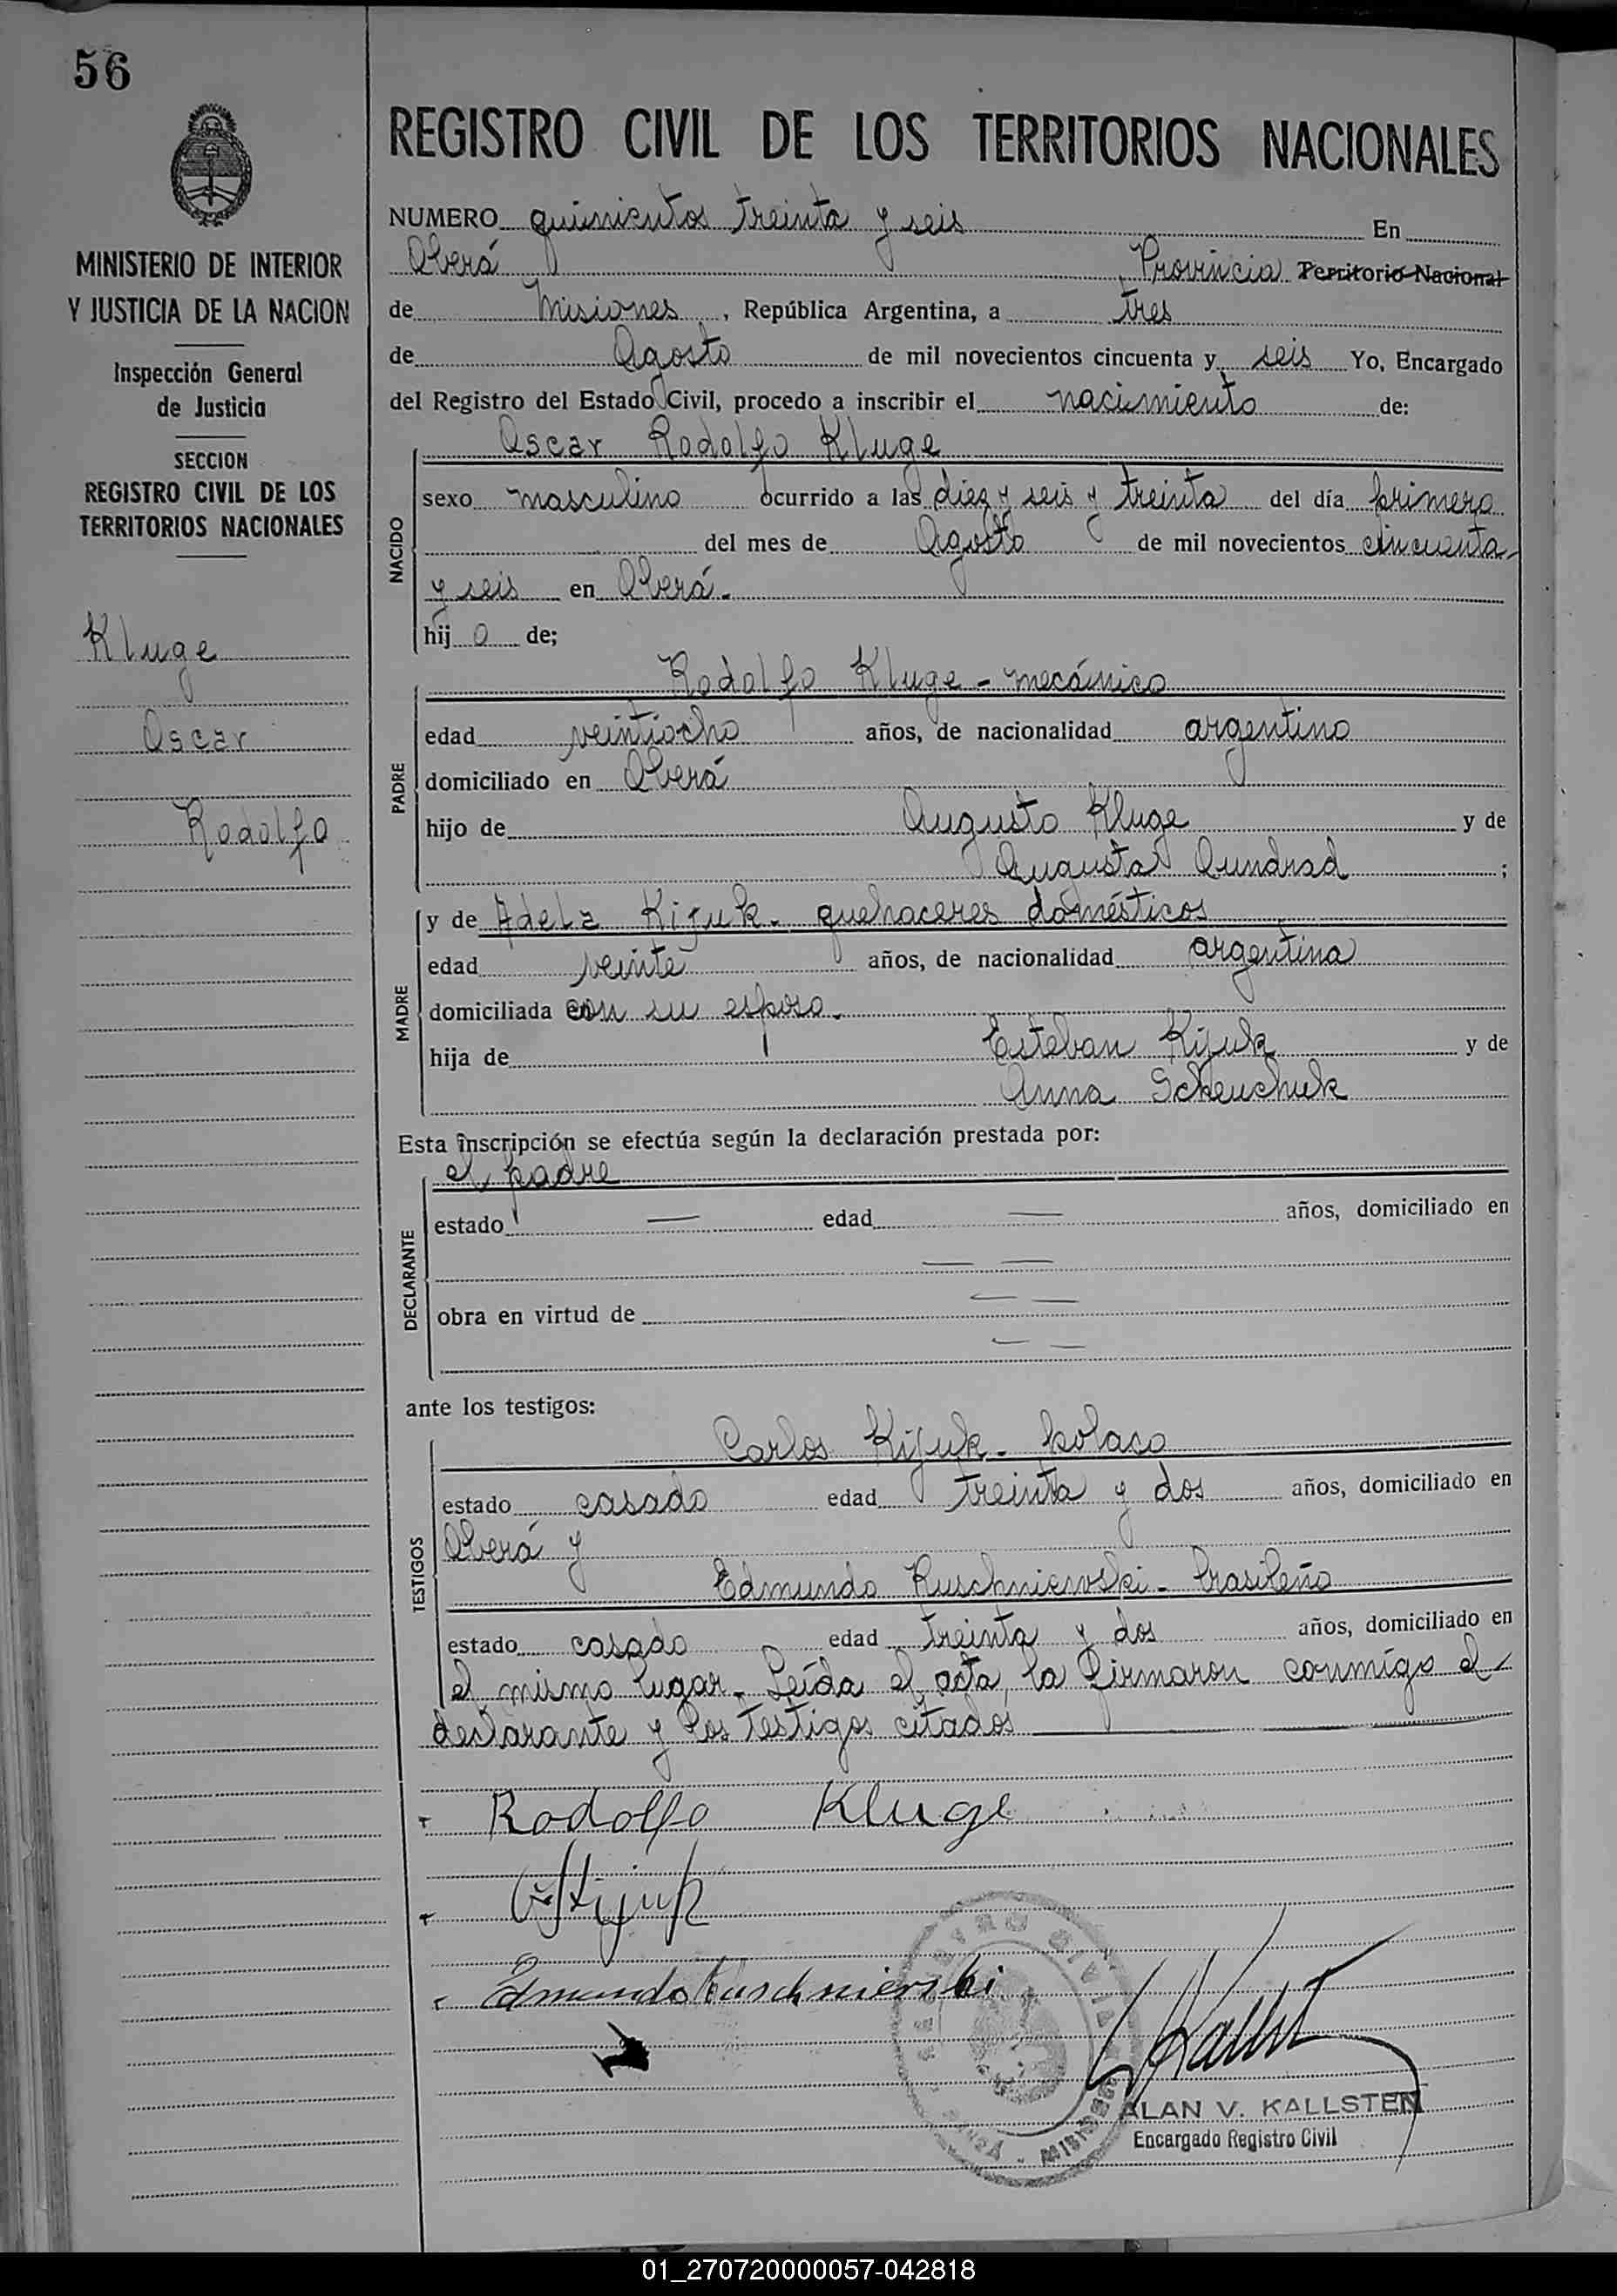 56
MINISTERIO DE INTERIOR
Y JUSTICIA DE LA NACION
Inspección General
de Justicia
SECCION
REGISTRO CIVIL DE LOS
TERRITORIOS NACIONALES
Kluge
Oscar
Rodolfo
REGISTRO CIVIL DE LOS TERRITORIOS NACIONALES
NUMERO quinientos treinta y seis En
Oberá Provincia Territorio Nacional
de Misiones, República Argentina, a tres
de Agosto de mil novecientos cincuenta y seis Yo, Encargado
del Registro del Estado Civil, procedo a inscribir el nacimiento de:
Oscar Rodolfo Kluge
NACIDO
sexo masculino ocurrido a las diez y seis y treinta del día primero
del mes de Agosto de mil novecientos cincuenta
y seis en Oberá.
hij o de;
PADRE
Rodolfo Kluge - mecánico
edad veintiocho años, de nacionalidad argentino
domiciliado en Oberá
hijo de Augusto Kluge y de
Augusta Qundrad ;
MADRE
y de Adela Kijuk - quehaceres domésticos
edad veinte años, de nacionalidad argentina
domiciliada con su esposo.
hija de Esteban Kijuk y de
Anna Scheuchuk
Esta inscripción se efectúa según la declaración prestada por:
DECLARANTE
el padre
estado — edad — años, domiciliado en
— —
obra en virtud de — —
— —
ante los testigos:
TESTIGOS
Carlos Kijuk - polaco
estado casado edad treinta y dos años, domiciliado en
Oberá y
Edmundo Ruschniewski - brasileño
estado casado edad treinta y dos años, domiciliado en
el mismo lugar. Leída el acta, la firmaron conmigo el
declarante y los testigos citados
Rodolfo Kluge
Kijuk
Edmundo Ruschnierski
MISIONES
ALAN V. KALLSTEN
Encargado Registro Civil
01_270720000057-042818